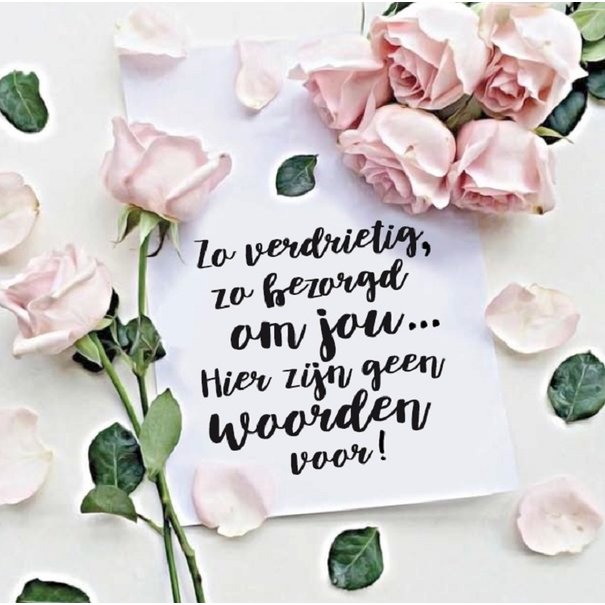 Zo verdrietig,
zo bezorgd
om jou...
Hier zijn geen
woorden
voor!